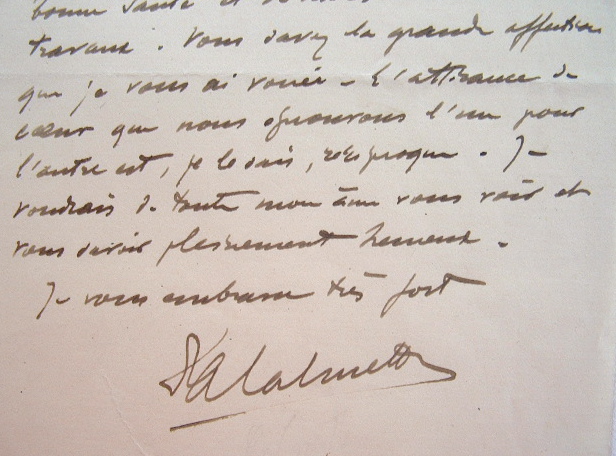 bonne santé et
travaux. Vous savez la grande affection
que je vous ai vouée - L'attirance de
cœur que nous éprouvons l'un pour
l'autre est, je le sais, réciproque. Je
voudrais de toute mon âme vous voir et
vous savoir pleinement heureux.
Je vous embrasse très fort
Calmette